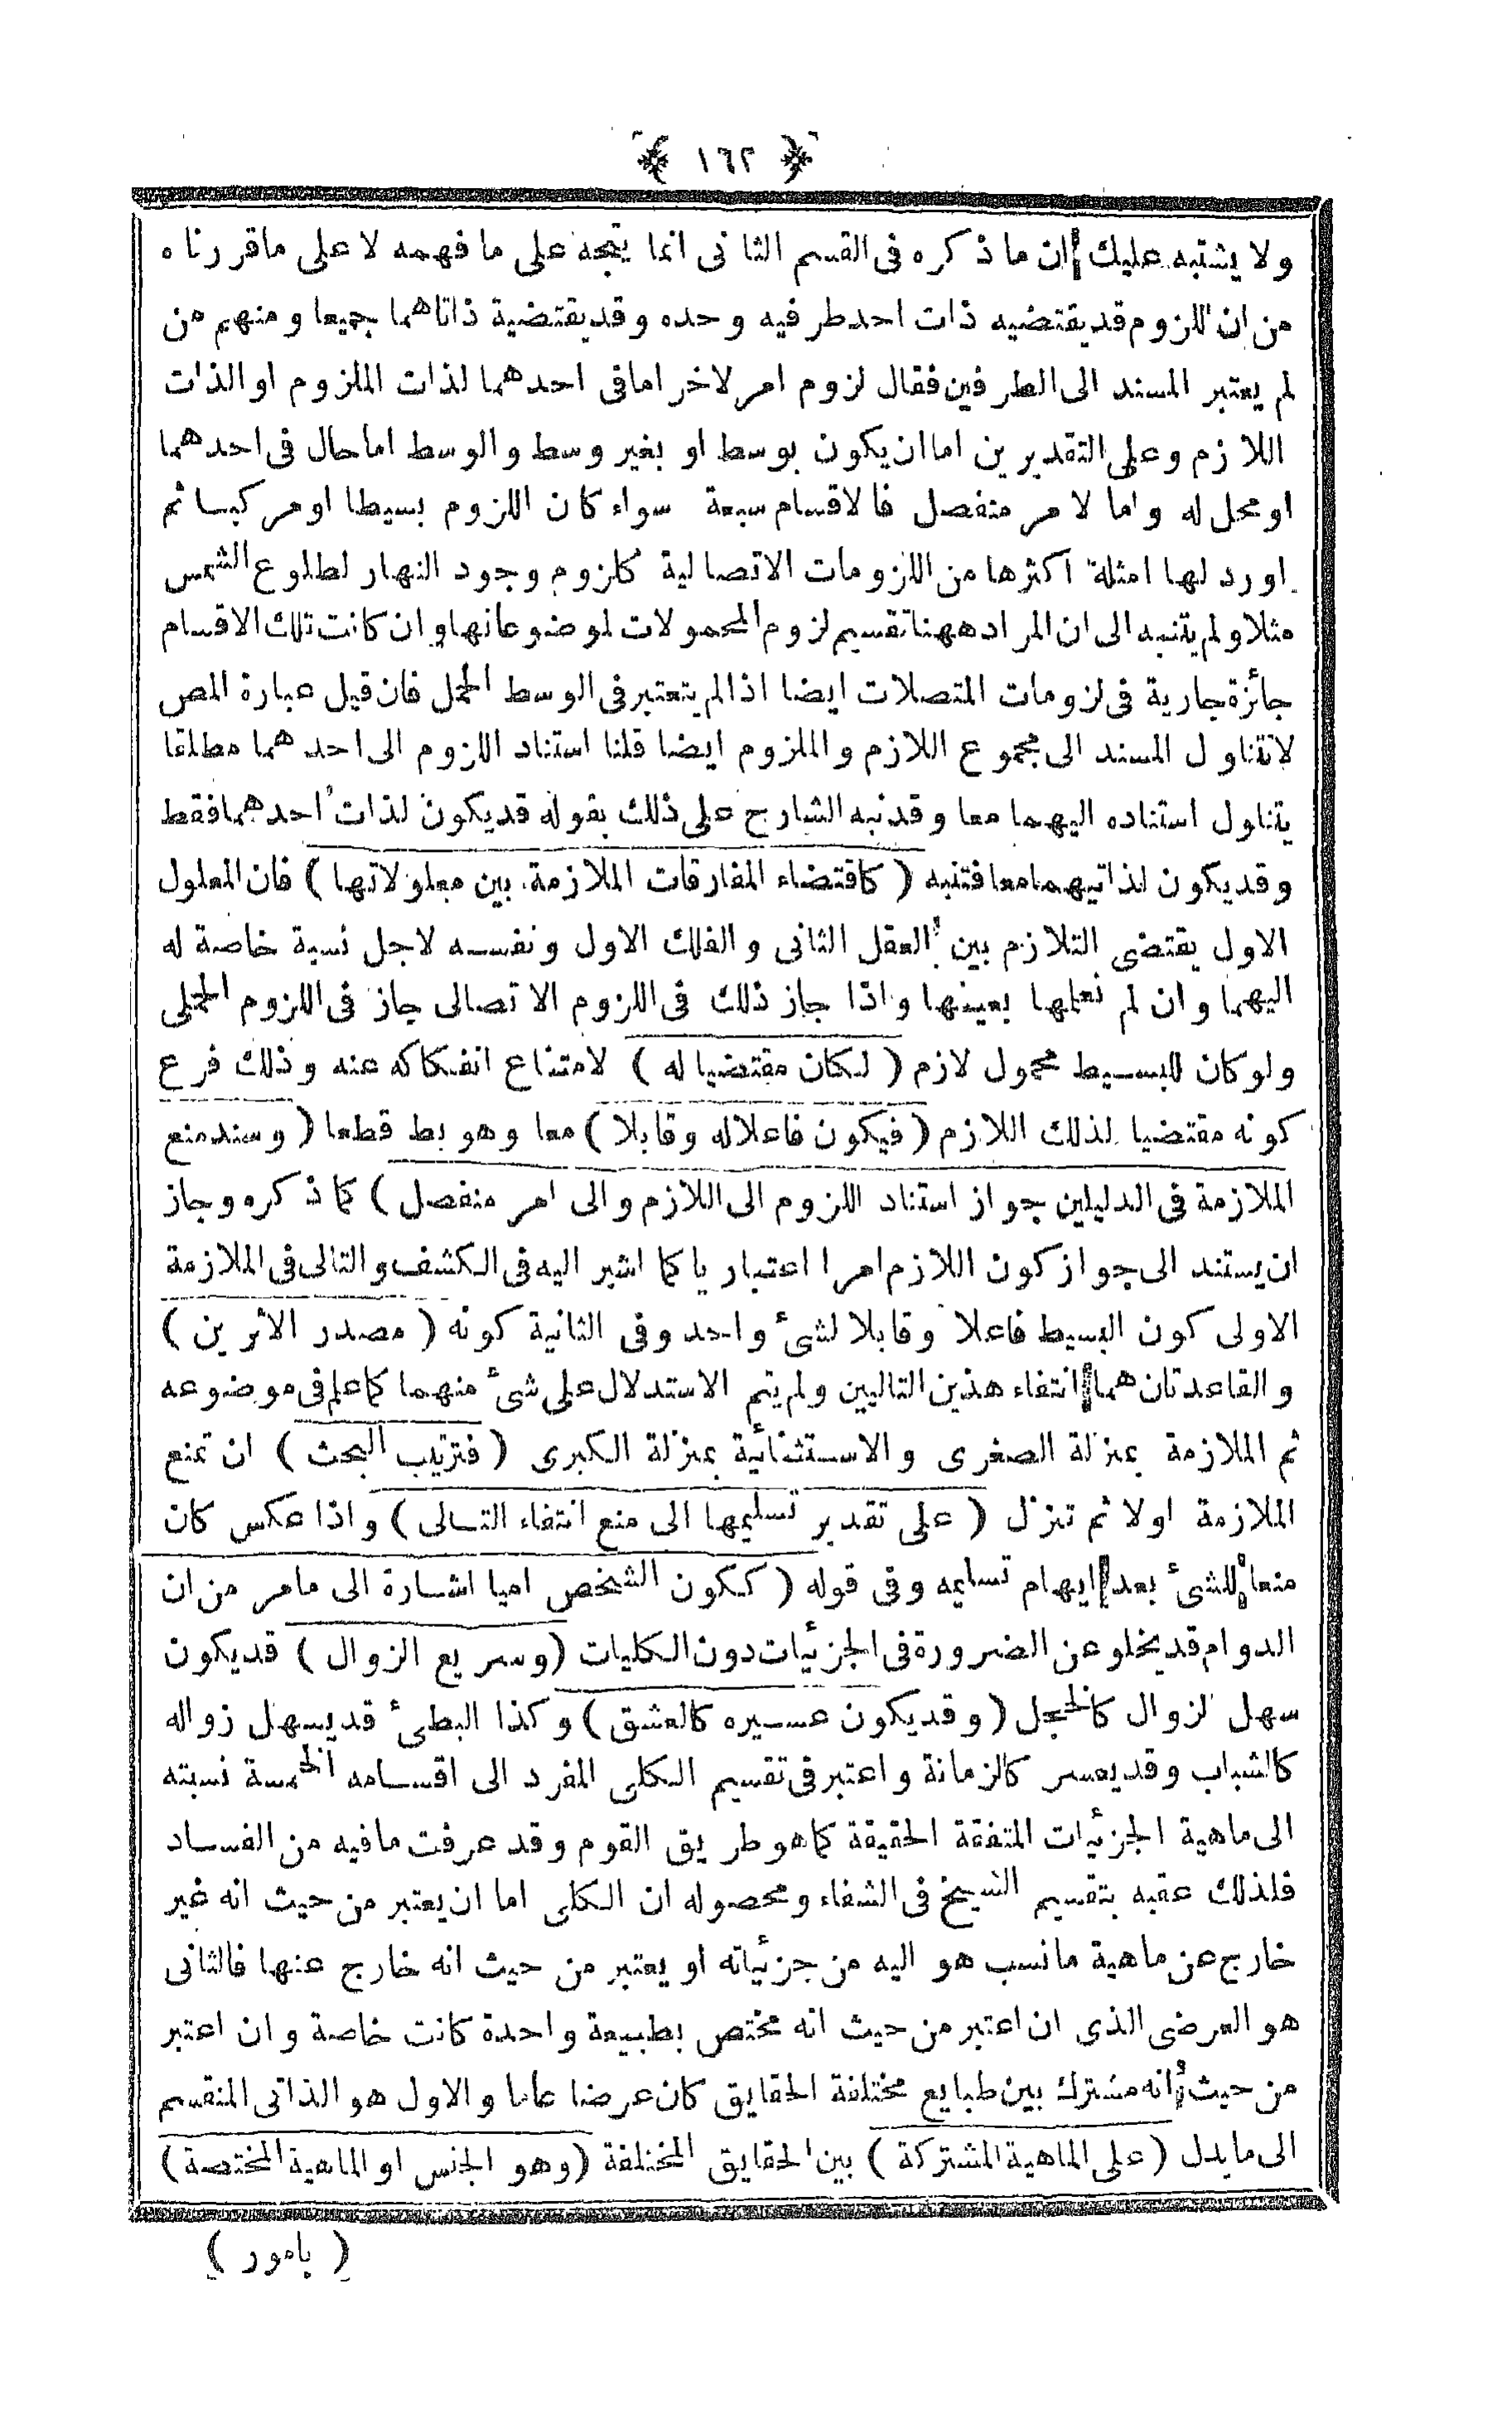 ١٦٢
ولا يشتبه عليك ان ما ذكره فى القسم الثانى انما يتجه على ما فهمه لا على ماقررناه
من ان اللزوم قديقتضيه ذات احدطرفيه وحده وقديقتضية ذاتاهما جميعا ومنهم من
لم يعتبر المسند الى الطرفين فقال لزوم امر لاخر امافى احدهما لذات الملزوم او الذات
اللازم وعلى التقديرين اماان يكون بوسط او بغير وسط والوسط اماحال فى احدهما
او محل له واما لامر منفصل فالاقسام سبعة سواء كان اللزوم بسيطا اومركبا ثم
اورد لها امثلة اكثرها من اللزومات الاتصالية كلزوم وجود النهار لطلوع الشمس
مثلا ولم يتنبه الى ان المراد ههنا تقسيم لزوم المحمولات لموضوعاتها وان كانت تلك الاقسام
جائزة جارية فى لزومات المتصلات ايضا اذالم يتعتبر فى الوسط الحمل فان قيل عبارة المص
لاتتناول المسند الى مجموع اللازم والملزوم ايضا قلنا استناد اللزوم الى احدهما مطلقا
يتناول استناده اليهما معا وقدنبه الشارح على ذلك بقوله قديكون لذات احدهما فقط
وقديكون لذاتيهمامعا فتنبه ( كاقتضاء المفارقات الملازمة بين معلولاتها ) فان المعلول
الاول يقتضى التلازم بين العقل الثانى والفلك الاول ونفسه لاجل نسبة خاصة له
اليهما وان لم نعلمها بعينها واذا جاز ذلك فى اللزوم الاتصالى جاز فى اللزوم الحملى
ولوكان للبسيط محمول لازم ( لكان مقتضياله ) لامتناع انفكاكه عنه وذلك فرع
كونه مقتضيا لذلك اللازم ( فيكون فاعلاله وقابلا ) معا وهو بط قطعا ( وسندمنع
الملازمة فى الدليلين جواز استناد اللزوم الى اللازم والى امر منفصل ) كما ذكره وجاز
ان يستند الى جواز كون اللازم امرا اعتباريا كما اشير اليه فى الكشف والتالى فى الملازمة
الاولى كون البسيط فاعلا وقابلا لشئ واحد وفى الثانية كونه ( مصدر الاثرين )
والقاعدتان هما انتفاء هذين التاليين ولم يتم الاستدلال على شئ منهما كماعلم فى موضوعه
ثم الملازمة بمنزلة الصغرى والاستثنائية بمنزلة الكبرى ( فترتيب البحث ) ان تمنع
الملازمة اولا ثم تنزل ( على تقدير تسليمها الى منع انتفاء التالى ) واذا عكس كان
منعا للشئ بعد ايهام تسليمه وفى قوله ( ككون الشخص اميا اشارة الى مامر من ان
الدوام قديخلو عن الضرورة فى الجزئيات دون الكليات ( وسريع الزوال ) قديكون
سهل الزوال كالخجل ( وقديكون عسيره كالعشق ) وكذا البطئ قديسهل زواله
كالشباب وقديعسر كالزمانة واعتبر فى تقسيم الكلى المفرد الى اقسامه الخمسة نسبته
الى ماهية الجزئيات المتفقة الحقيقة كماهو طريق القوم وقد عرفت مافيه من الفساد
فلذلك عقبه بتقسيم الشيخ فى الشفاء ومحصوله ان الكلى اما ان يعتبر من حيث انه غير
خارج عن ماهية مانسب هو اليه من جزئياته او يعتبر من حيث انه خارج عنها فالثانى
هو العرضى الذى ان اعتبر من حيث انه مختص بطبيعة واحدة كانت خاصة وان اعتبر
من حيث انه مشترك بين طبايع مختلفة الحقايق كان عرضا عاما والاول هو الذاتى المنقسم
الى مايدل ( على الماهية المشتركة ) بين الحقايق المختلفة ( وهو الجنس او الماهية المختصة )
( بامور )